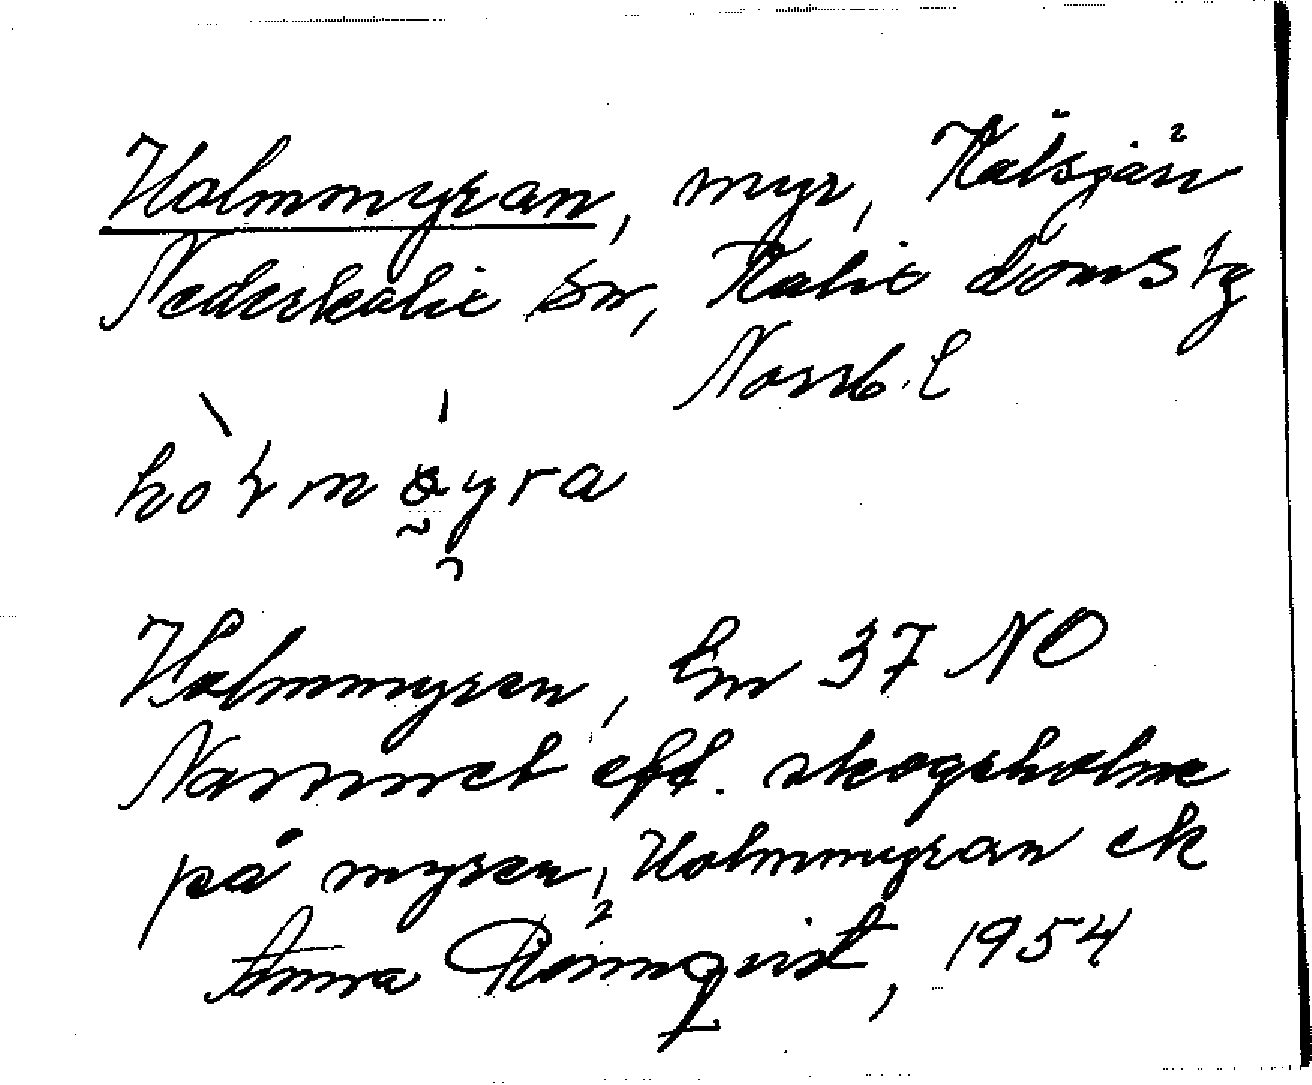 Holmmyran, myr, Kälsjärv
Nederkalix sn, Kalix domstg
Norrb. l
holmøyra
Holmmyren, Em 37 NO
Namnet eft. skogsholme
på myren, Holmmyran ek
Anna Rönnqvist, 1954